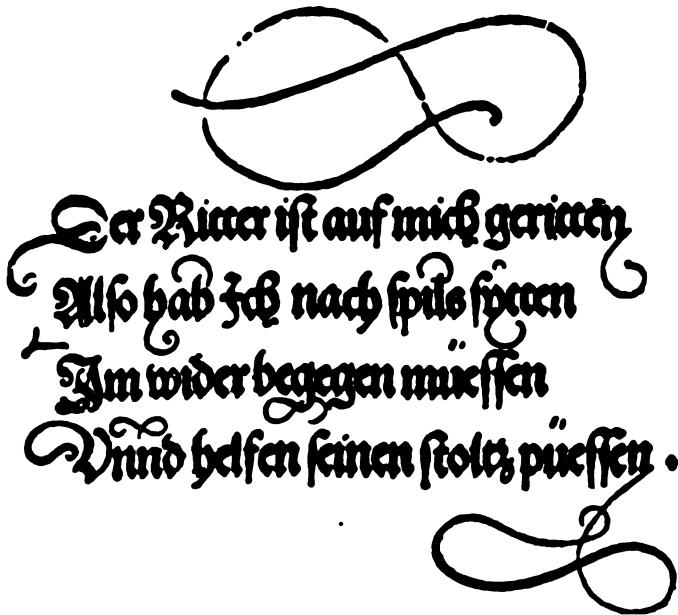 Der Ritter ist auf mich geritten
Also hab Ich nach spils sÿtten
Im wider begegen müessen
Vnnd helfen seinen stoltz püessen .